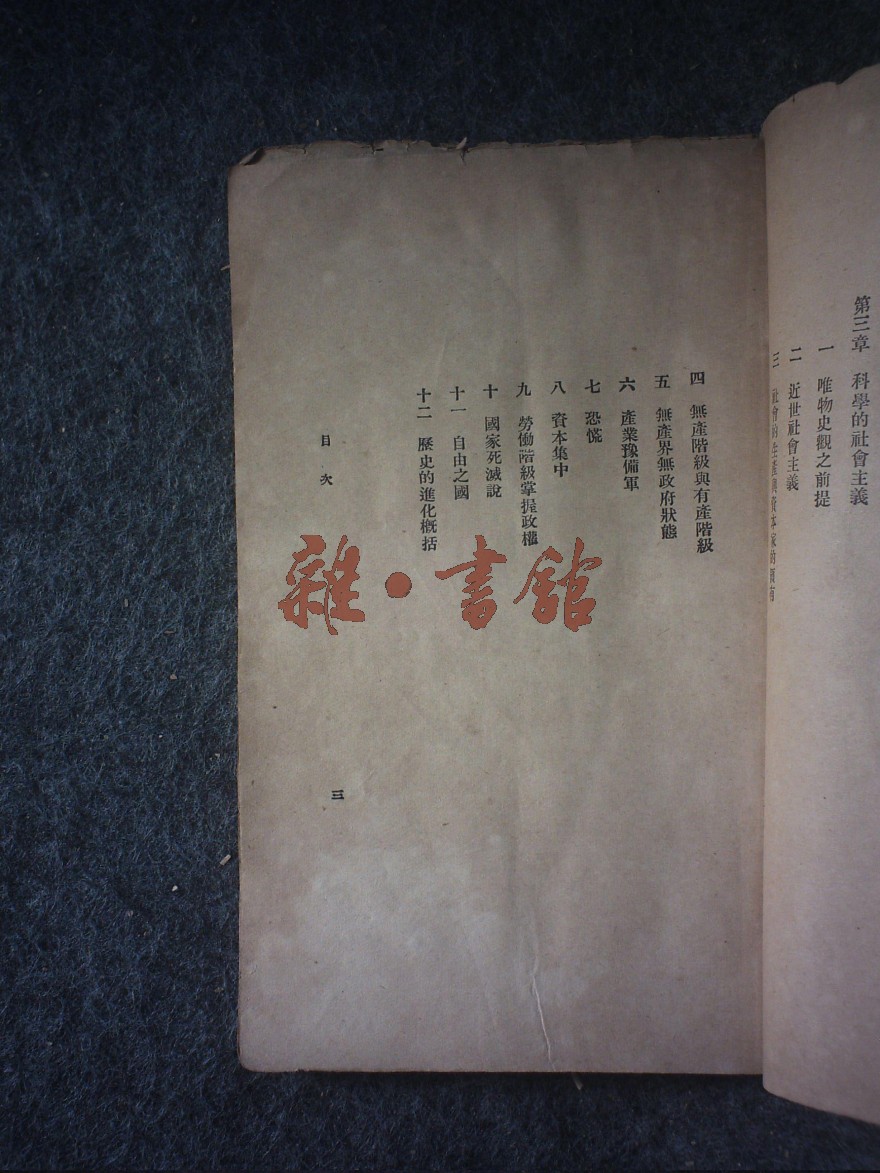 第三章 科學的社會主義
一 唯物史觀之前提
二 近世社會主義
三 社會的生產與資本家的領有
四 無產階級與有產階級
五 無產界無政府狀態
六 產業豫備軍
七 恐慌
八 資本集中
九 勞働階級掌握政權
十 國家死滅說
十一 自由之國
十二 歷史的進化槪括
目次
三
雜·書館